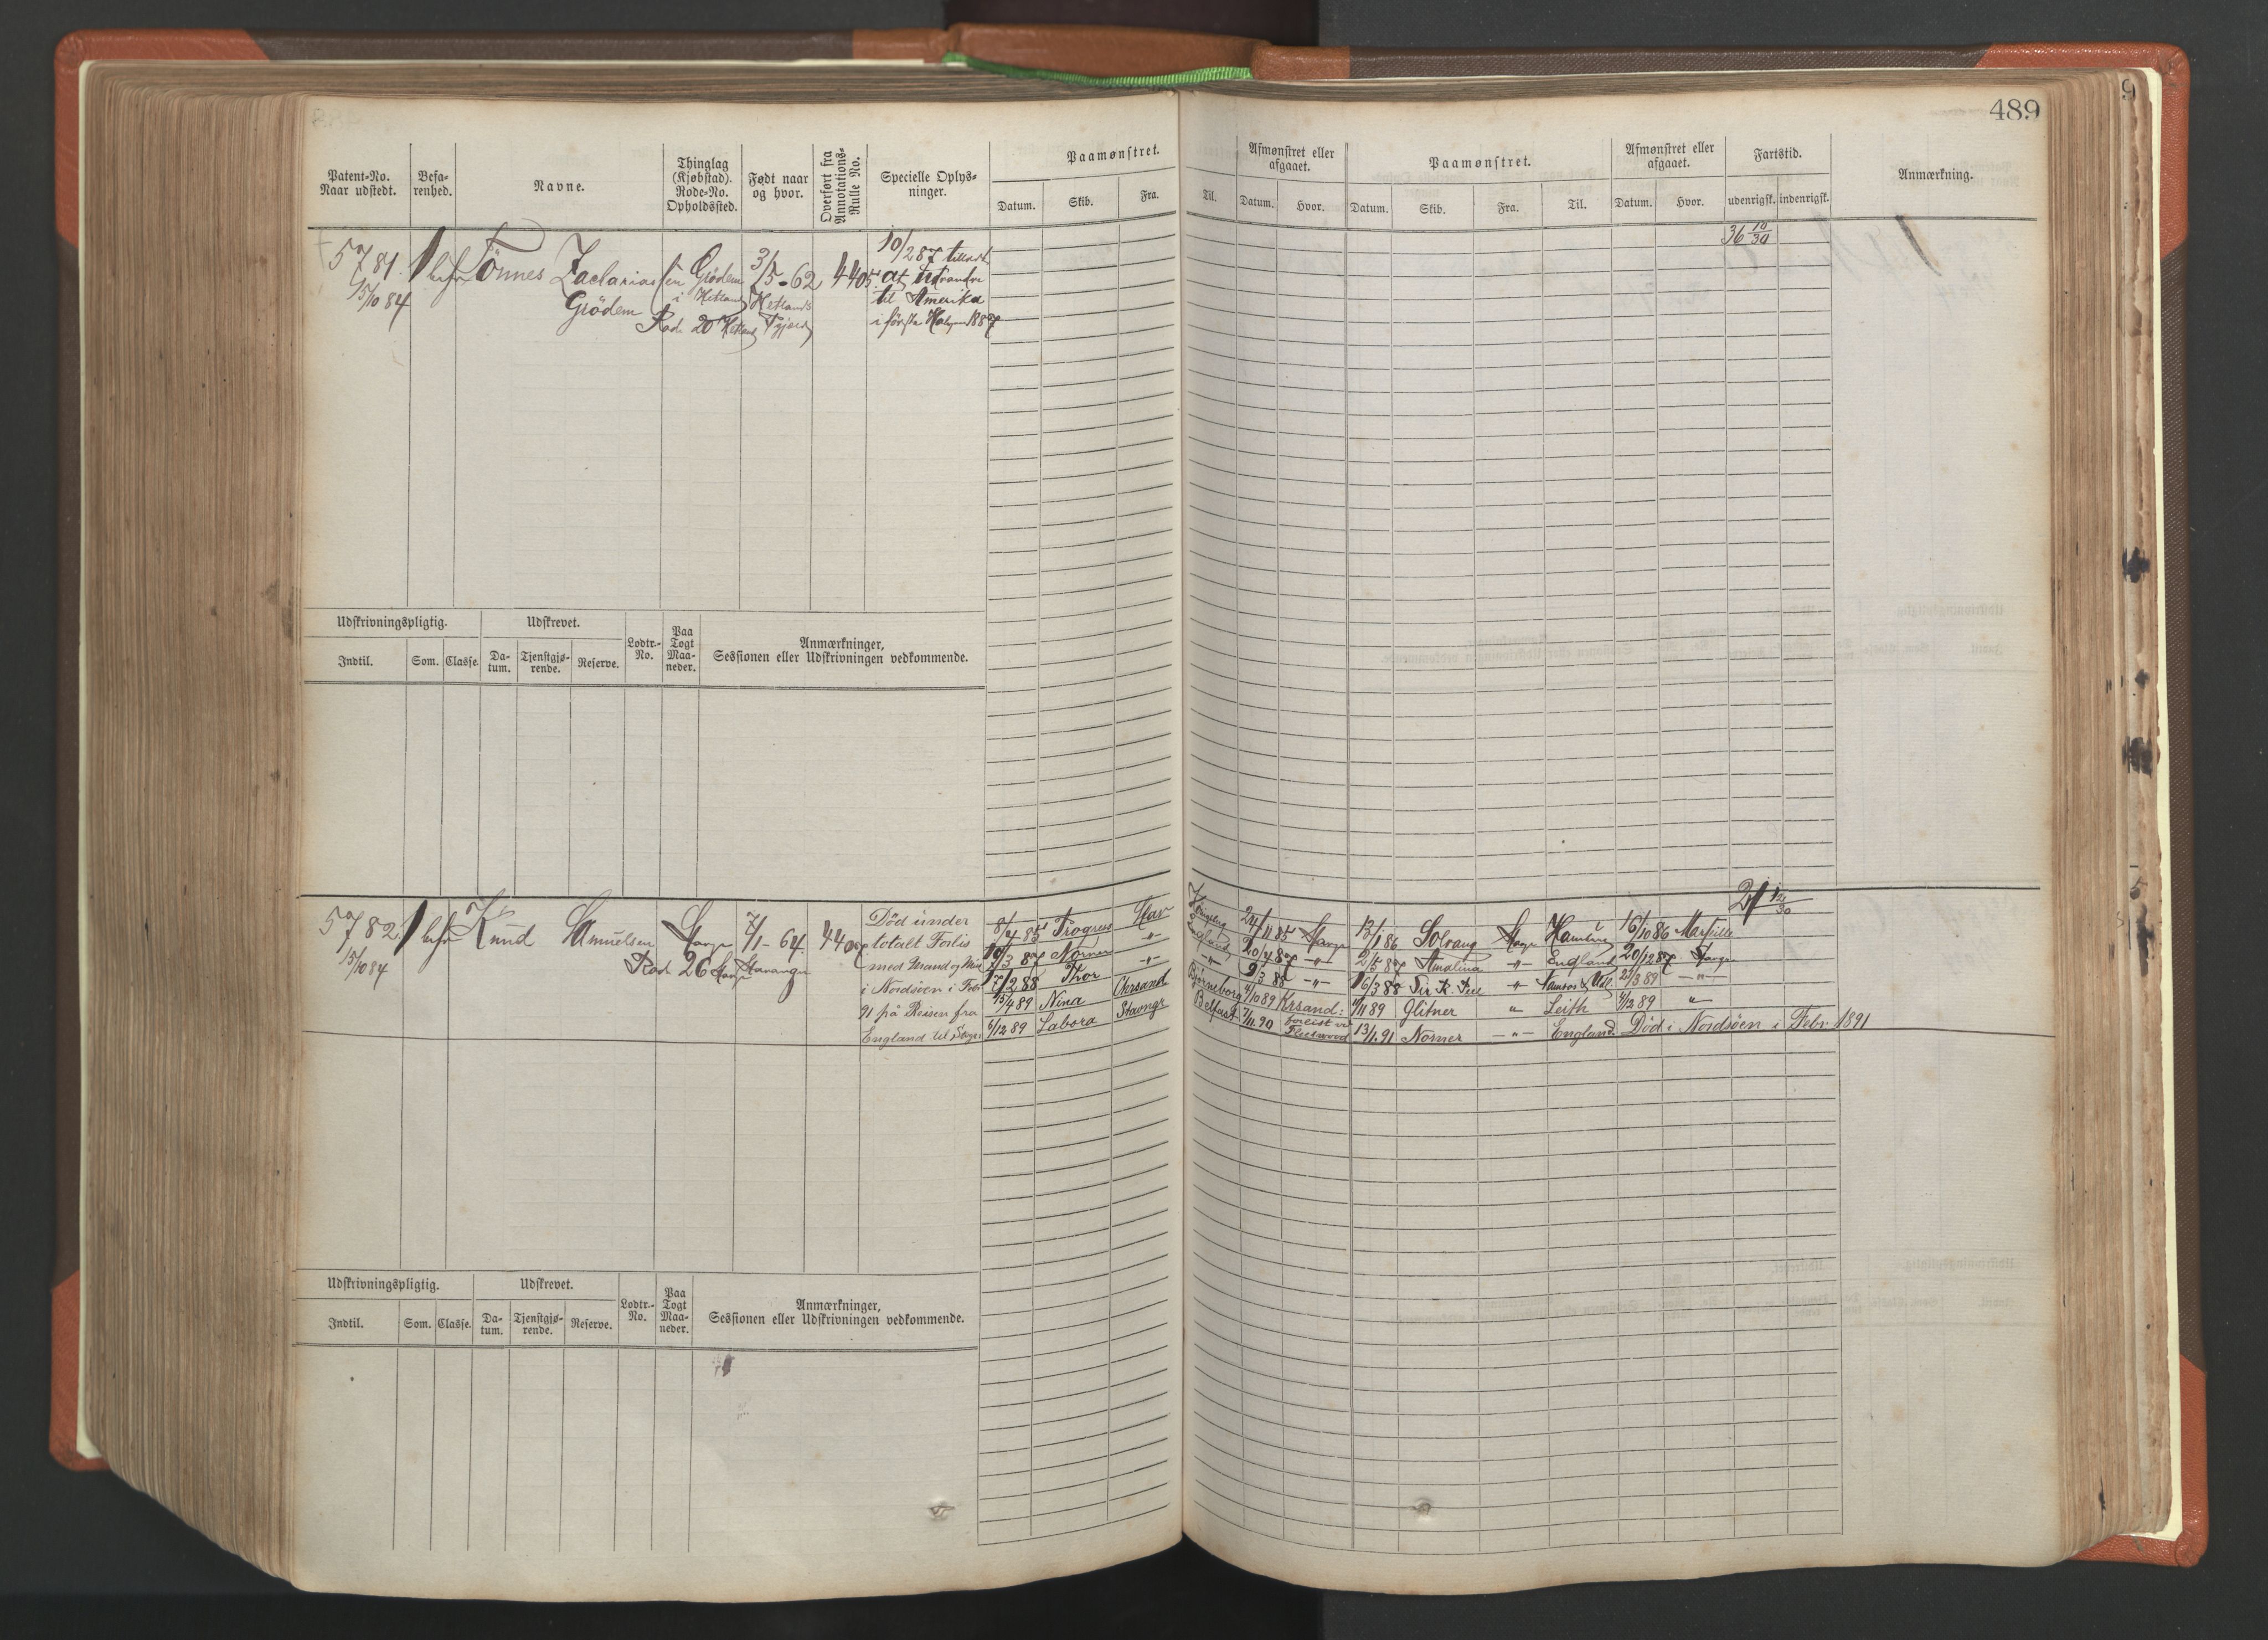 489
Patent-No.
Naar udstedt.
Befa-
renhed.
Navne.
Thinglag
(Kjøbstad).
Rode-No.
Opholdssted.
Født naar
og hvor.
Overført fra
Annotations-
Rulle No.
Specielle Oplys-
ninger.
Paamønstret.
Datum. Skib. Fra. Til.
Afmønstret eller
afgaaet.
Datum. Hvor.
Paamønstret.
Datum. Skib. Fra. Til.
Afmønstret eller
afgaaet.
Datum. Hvor.
Fartstid.
udenrigsk. indenrigsk.
Anmærkning.
5781
15/10 84
1 bef
Tönnes Zachariassen
Grödem
Grödem
i Hetland
Rod 20 Hetland
3/5-62
Hetlands
4405
10/2 87 tilladt
at udvandre
til Amerika
i første Halvaar 1887
36 10/30
Udskrivningspligtig. Udskrevet.
Indtil. Som. Classe. Da-
tum. Tjenstgjø-
rende. Reserve.
Lodtr.-
No.
Paa
Togt
Maa-
neder.
Anmærkninger,
Sessionen eller Udskrivningen vedkommende.
5782
15/10 84
1 bef
Knud Samuelsen
Stavgr
Rod 26 Stavgr
7/1-64
Stavanger
Död under
totalt Forlis
med Mand og Mus
i Nordsöen i Febr
91 på Reisen fra
England til Stavgr
8/4 85 Progress Stav 24/11 85 Stavgr 13/1 86 Solvang Stavgr Hamburg 16/10 86 Marseille
10/3 87 Norner -"- England 20/4 87 -"- 2/5 87 Amalina -"- England 20/12 87 Stavgr
17/2 88 Thor -"- -"- 9/3 88 -"- 16/3 88 Sir R. Peel -"- 21/3 89 -"-
15/4 89 Nina Chrsand Bjørneborg 4/10 89 Krsand: 4/11 89 Glitner " Leith 4/12 89 "
6/12 89 Labora Stavngr Belfast 7/11 90 forlist ved
Fleetwood 13/1 91 Norner -"- England Död i Nordsöen i Febr. 1891
21 12/30
Udskrivningspligtig. Udskrevet.
Indtil. Som. Classe. Da-
tum. Tjenstgjø-
rende. Reserve.
Lodtr.-
No.
Paa
Togt
Maa-
neder.
Anmærkninger,
Sessionen eller Udskrivningen vedkommende.